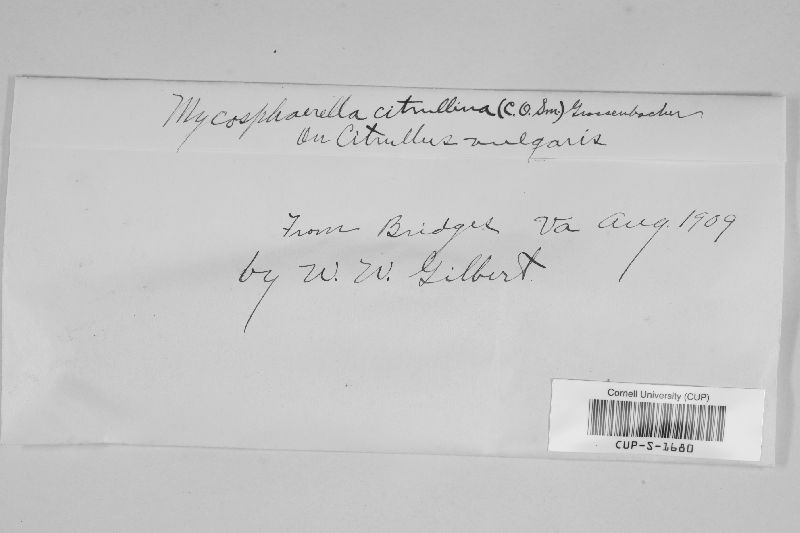 Mycosphaerella citrullina (C.O.Sm.) Grossenbacher
On Citrullus vulgaris
From Bridges Va Aug. 1909
by W. W. Gilbert.
Cornell University (CUP)
CUP-S-1680